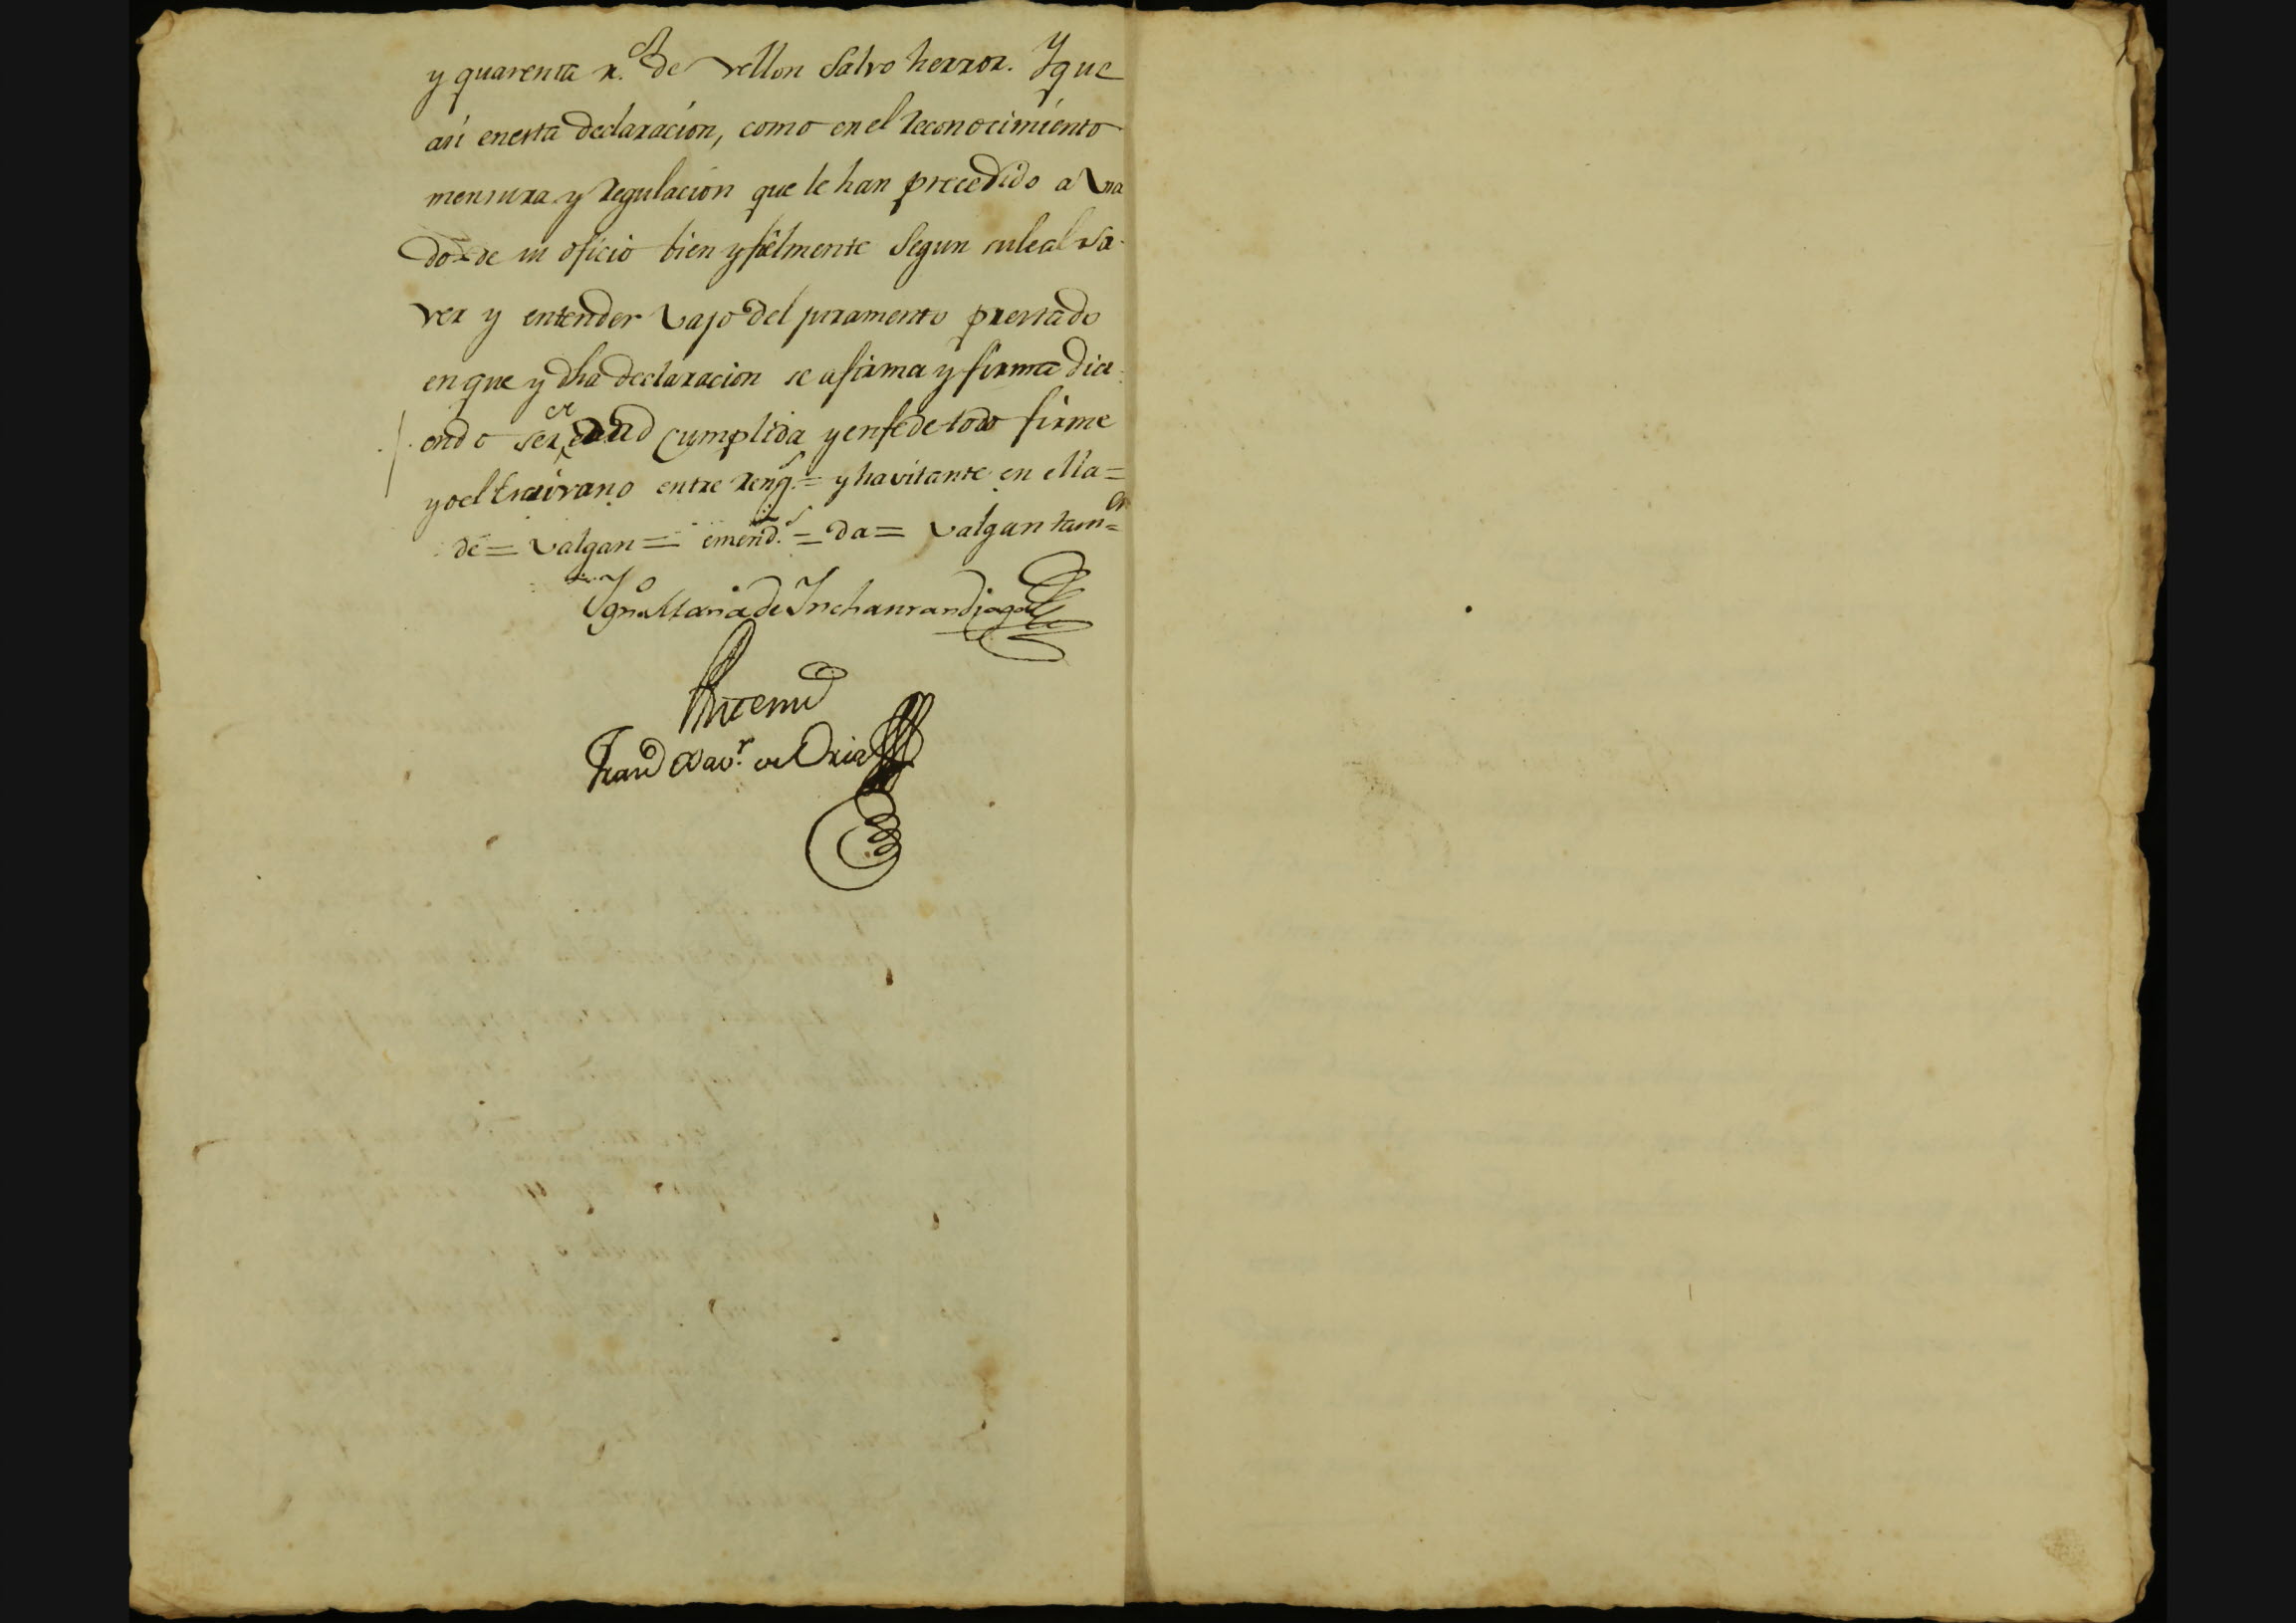 y quarenta r.s de vellon Salvo herror. Y que
asi enesta declaracion, como en el reconocimiento
mensura y regulacion que le han precedido a Vsa
do de su oficio bien y fielmente Segun suleal sa-
ver y entender Vajo del juramento prestado
en que y dha declaracion se afirma y firma dici
endo ser de edad Cumplida y enfe de todo firme
yo el Escrivano entre reng.s = y havitante en ella =
de = valgan = emend.s = da = Valgan tam.n =
Ign.o Maria de Inchaurandiaga
Antemi
Fran.co Xav.r de Oria